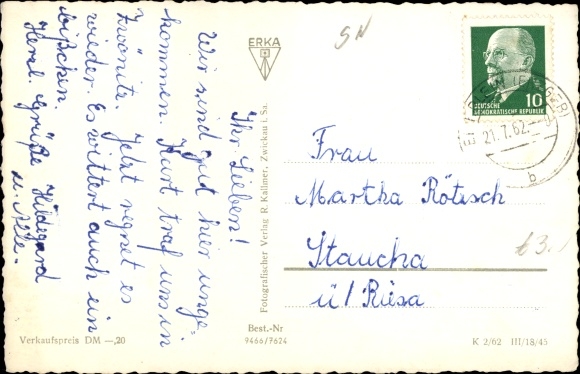 Ihr Lieben!
Wir sind gut hier ange-
kommen. Kurt traf uns in
Zwönitz. Jetzt regnet es
wieder. Es wittert auch ein
bißchen.
Herzl. Grüße Hildegard
u. Alle.
ERKA
Fotografischer Verlag R. Kallmer, Zwickau i. Sa.
Best.-Nr
9466/7624
Verkaufspreis DM —,20
K 2/62 III/18/45
SN
DEUTSCHE
DEMOKRATISCHE REPUBLIK
10
21.7.62
b
Frau
Martha Rötzsch
Staucha
ü/ Riesa
£3.-